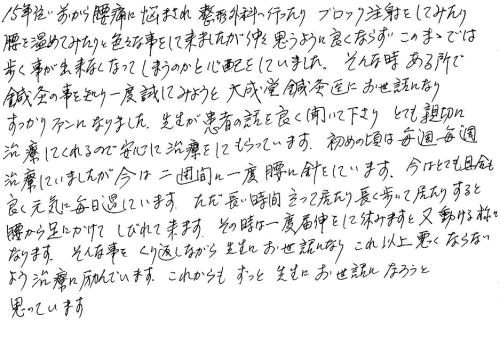 15年位前から腰痛に悩まされ 整形外科へ行ったり ブロック注射をしてみたり
腰を温めてみたりと色々な事をして来ましたが中々思うように良くならず このままでは
歩く事が出来なくなってしまうのかと心配をしていました。そんな時ある所で
鍼灸の事を知り一度試してみようと 大成堂鍼灸医にお世話になり
すっかりファンになりました。先生が患者の話を良く聞いて下さり とても親切に
治療してくれるので安心して治療をしてもらっています。初めの頃は毎週毎週
治療していましたが今は 二週間に一度腰に針をしています。今はとても具合も
良く元気に毎日過しています。ただ長い時間立って居たり長く歩いて居たりすると
腰から足にかけて しびれて来ます。その時は一度屈伸をして休みますと又動ける様に
なります。そんな事を くり返しながら 先生にお世話になり これ以上悪くならない
よう治療に励んでいます。これからも ずっと 先生に お世話になろうと
思っています